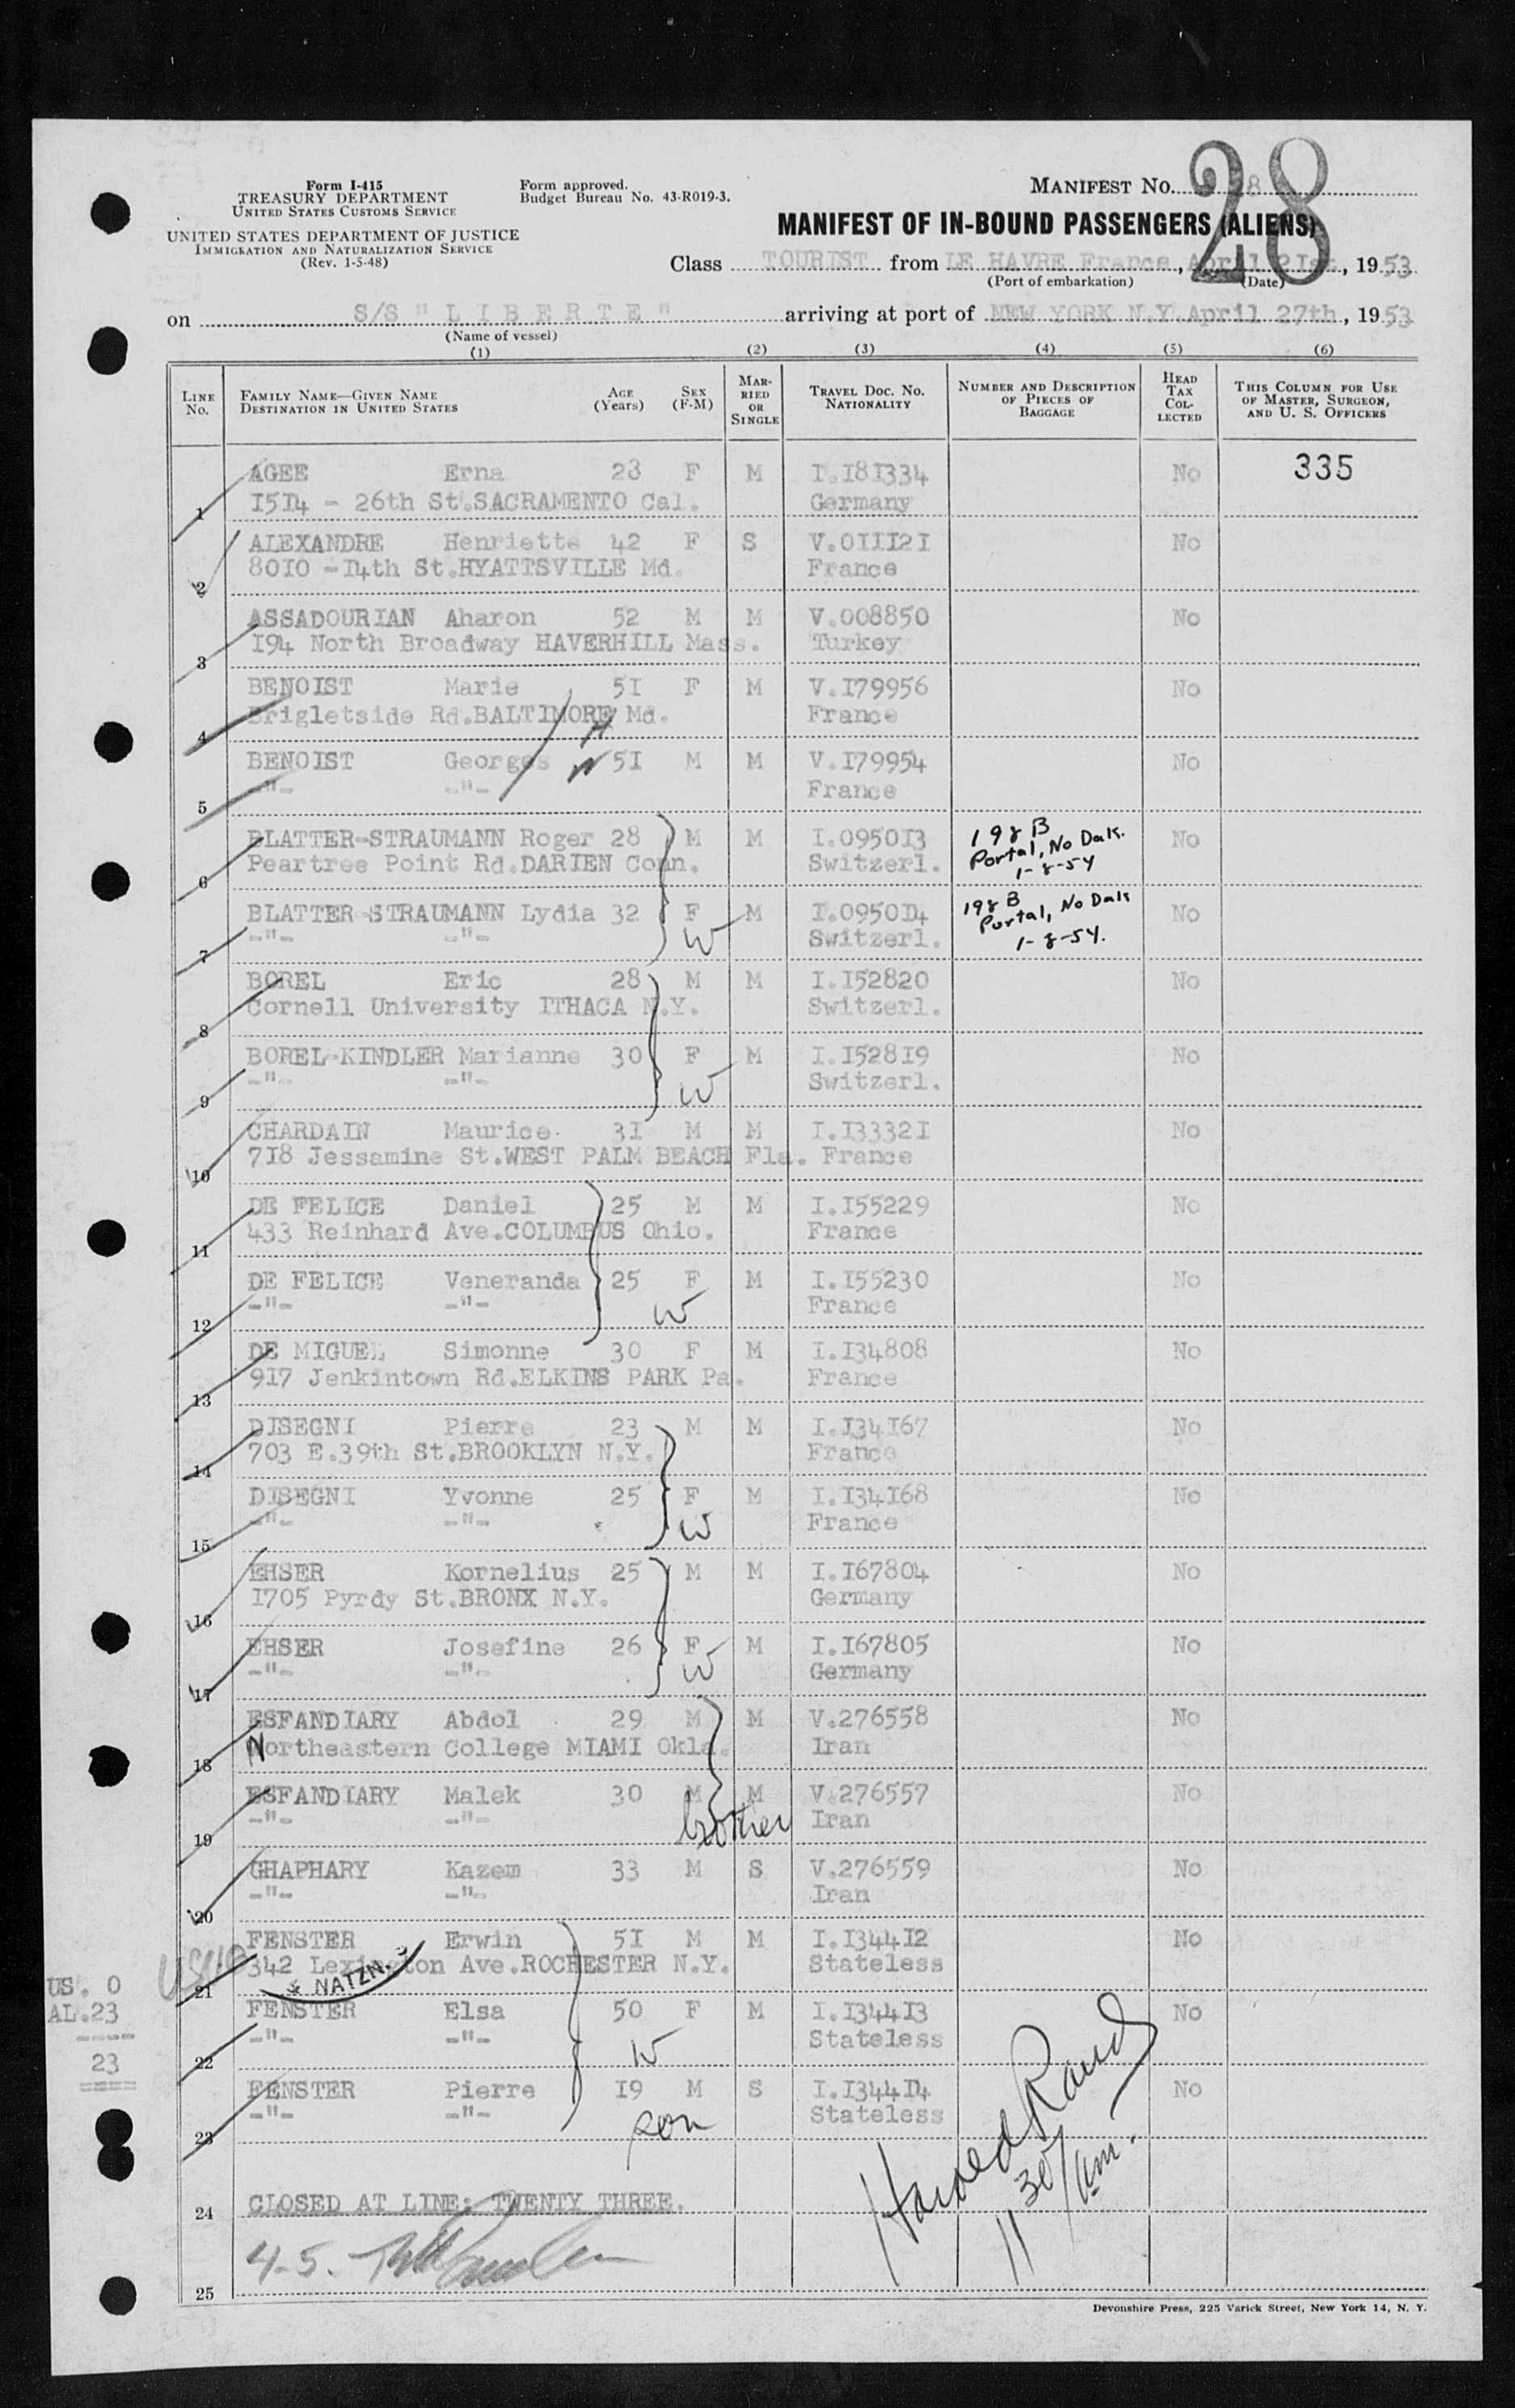 Form I-415
TREASURY DEPARTMENT
UNITED STATES CUSTOMS SERVICE
UNITED STATES DEPARTMENT OF JUSTICE
IMMIGRATION AND NATURALIZATION SERVICE
(Rev. 1-5-48)
Form approved.
Budget Bureau No. 43-R019-3.
MANIFEST NO. 28
MANIFEST OF IN-BOUND PASSENGERS (ALIENS)
Class TOURIST from LE HAVRE France, April 2Ist, 1953
(Port of embarkation) (Date)
on S/S " L I B E R T E " arriving at port of NEW YORK N.Y. April 27th, 1953
(Name of vessel)
(1) (2) (3) (4) (5) (6)
LINE No. FAMILY NAME—GIVEN NAME DESTINATION IN UNITED STATES AGE (Years) SEX (F-M) MARRIED OR SINGLE TRAVEL DOC. NO. NATIONALITY NUMBER AND DESCRIPTION OF PIECES OF BAGGAGE HEAD TAX COLLECTED THIS COLUMN FOR USE OF MASTER, SURGEON, AND U. S. OFFICERS
1 AGEE Erna 28 F M I.I8I334 No 335
I5I4 - 26th St.SACRAMENTO Cal. Germany
2 ALEXANDRE Henriette 42 F S V.OIII2I No
80I0 -I4th St.HYATTSVILLE Md. France
3 ASSADOURIAN Aharon 52 M M V.008850 No
I94 North Broadway HAVERHILL Mass. Turkey
4 BENOIST Marie 5I F M V.I79956 No
Brigletside Rd.BALTIMORE Md. France
H
5 BENOIST Georges W 5I M M V.I79954 No
-"- -"- France
6 BLATTER-STRAUMANN Roger 28 M M I.0950I3 198 B No
Peartree Point Rd.DARIEN Conn. Switzerl. Portal, No Dak. 1-8-54
7 BLATTER-STRAUMANN Lydia 32 F M I.0950I4 198 B No
-"- -"- W Switzerl. Portal, No Dak 1-8-54.
8 BOREL Eric 28 M M I.I52820 No
Cornell University ITHACA N.Y. Switzerl.
9 BOREL-KINDLER Marianne 30 F M I.I528I9 No
-"- -"- W Switzerl.
10 CHARDAIN Maurice 3I M M I.I3332I No
7I8 Jessamine St.WEST PALM BEACH Fla. France
11 DE FELICE Daniel 25 M M I.I55229 No
433 Reinhard Ave.COLUMBUS Ohio. France
12 DE FELICE Veneranda 25 F M I.I55230 No
-"- -"- W France
13 DE MIGUEL Simonne 30 F M I.I34808 No
9I7 Jenkintown Rd.ELKINS PARK Pa. France
14 DISEGNI Pierre 23 M M I.I34I67 No
703 E.39th St.BROOKLYN N.Y. France
15 DISEGNI Yvonne 25 F M I.I34I68 No
-"- -"- W France
16 EHSER Kornelius 25 M M I.I67804 No
I705 Pyrdy St.BRONX N.Y. Germany
17 EHSER Josefine 26 F M I.I67805 No
-"- -"- W Germany
18 ESFANDIARY Abdol 29 M M V.276558 No
Northeastern College MIAMI Okla. Iran
19 ESFANDIARY Malek 30 M M V.276557 No
-"- -"- brother Iran
20 GHAPHARY Kazem 33 M S V.276559 No
-"- -"- Iran
21 FENSTER Erwin 5I M M I.I344I2 No
342 Lexington Ave.ROCHESTER N.Y. Stateless
& NATZN. S
22 FENSTER Elsa 50 F M I.I344I3 No
-"- -"- W Stateless
23 FENSTER Pierre I9 M S I.I344I4 No
-"- -"- son Stateless
US. 0
AL.23
----
23
====
24 CLOSED AT LINE: TWENTY THREE.
Harold Rand
11 30/am.
4-5.
25
Devonshire Press, 225 Varick Street, New York 14, N. Y.